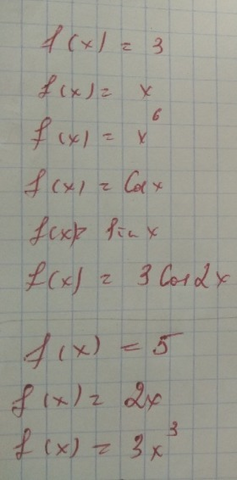 f(x) = 3
f(x) = x
f(x) = x⁶
f(x) = Cosx
f(x) = Sinx
f(x) = 3Cos2x
f(x) = 5
f(x) = 2x
f(x) = 3x³